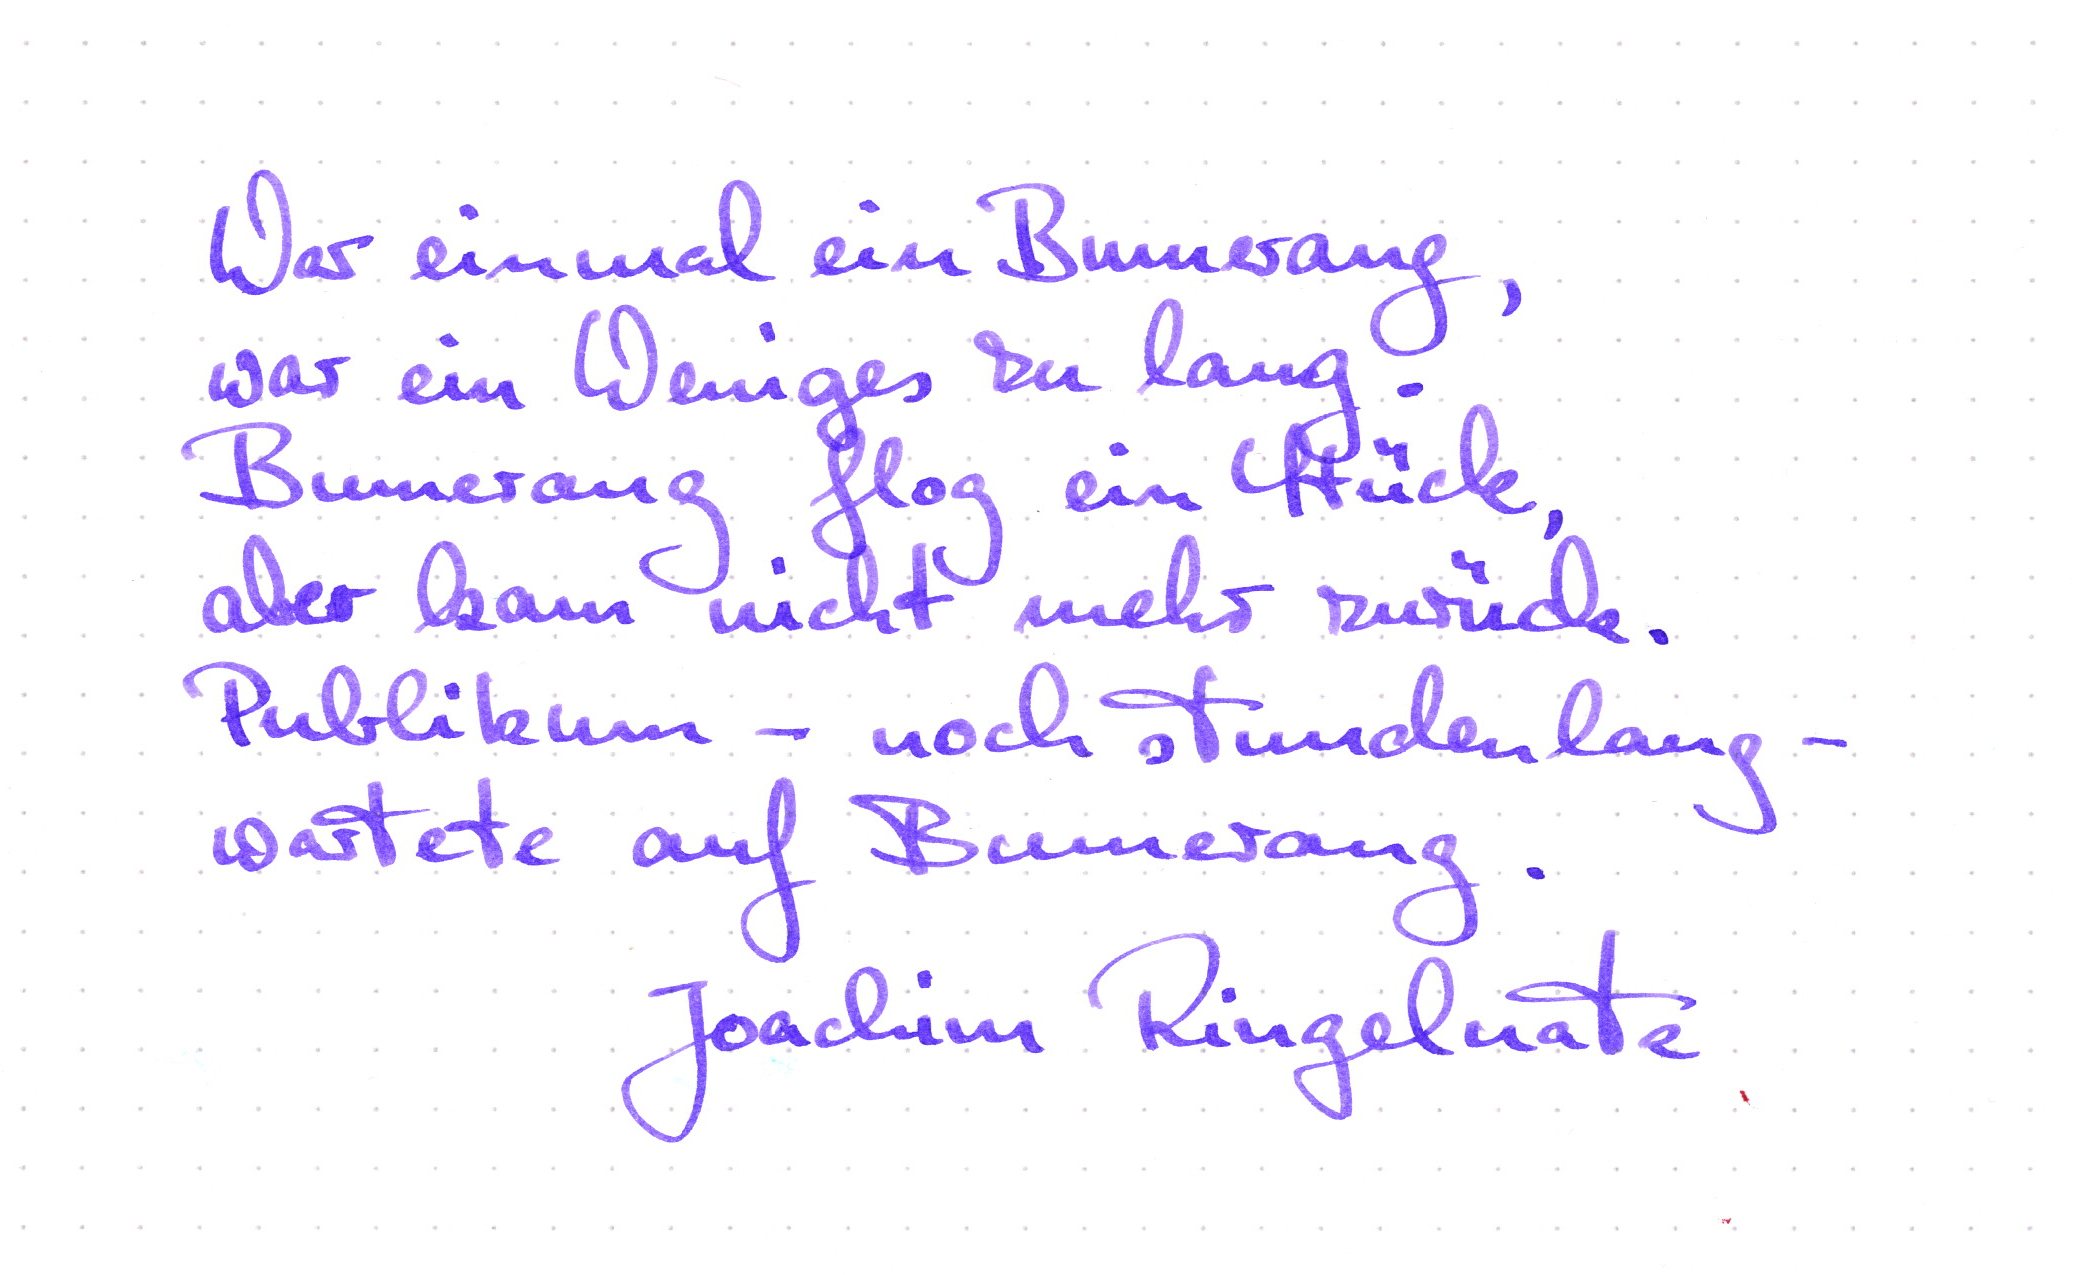 War einmal ein Bumerang,
war ein Weniges zu lang.
Bumerang flog ein Stück,
aber kam nicht mehr zurück.
Publikum – noch stundenlang –
wartete auf Bumerang.
Joachim Ringelnatz